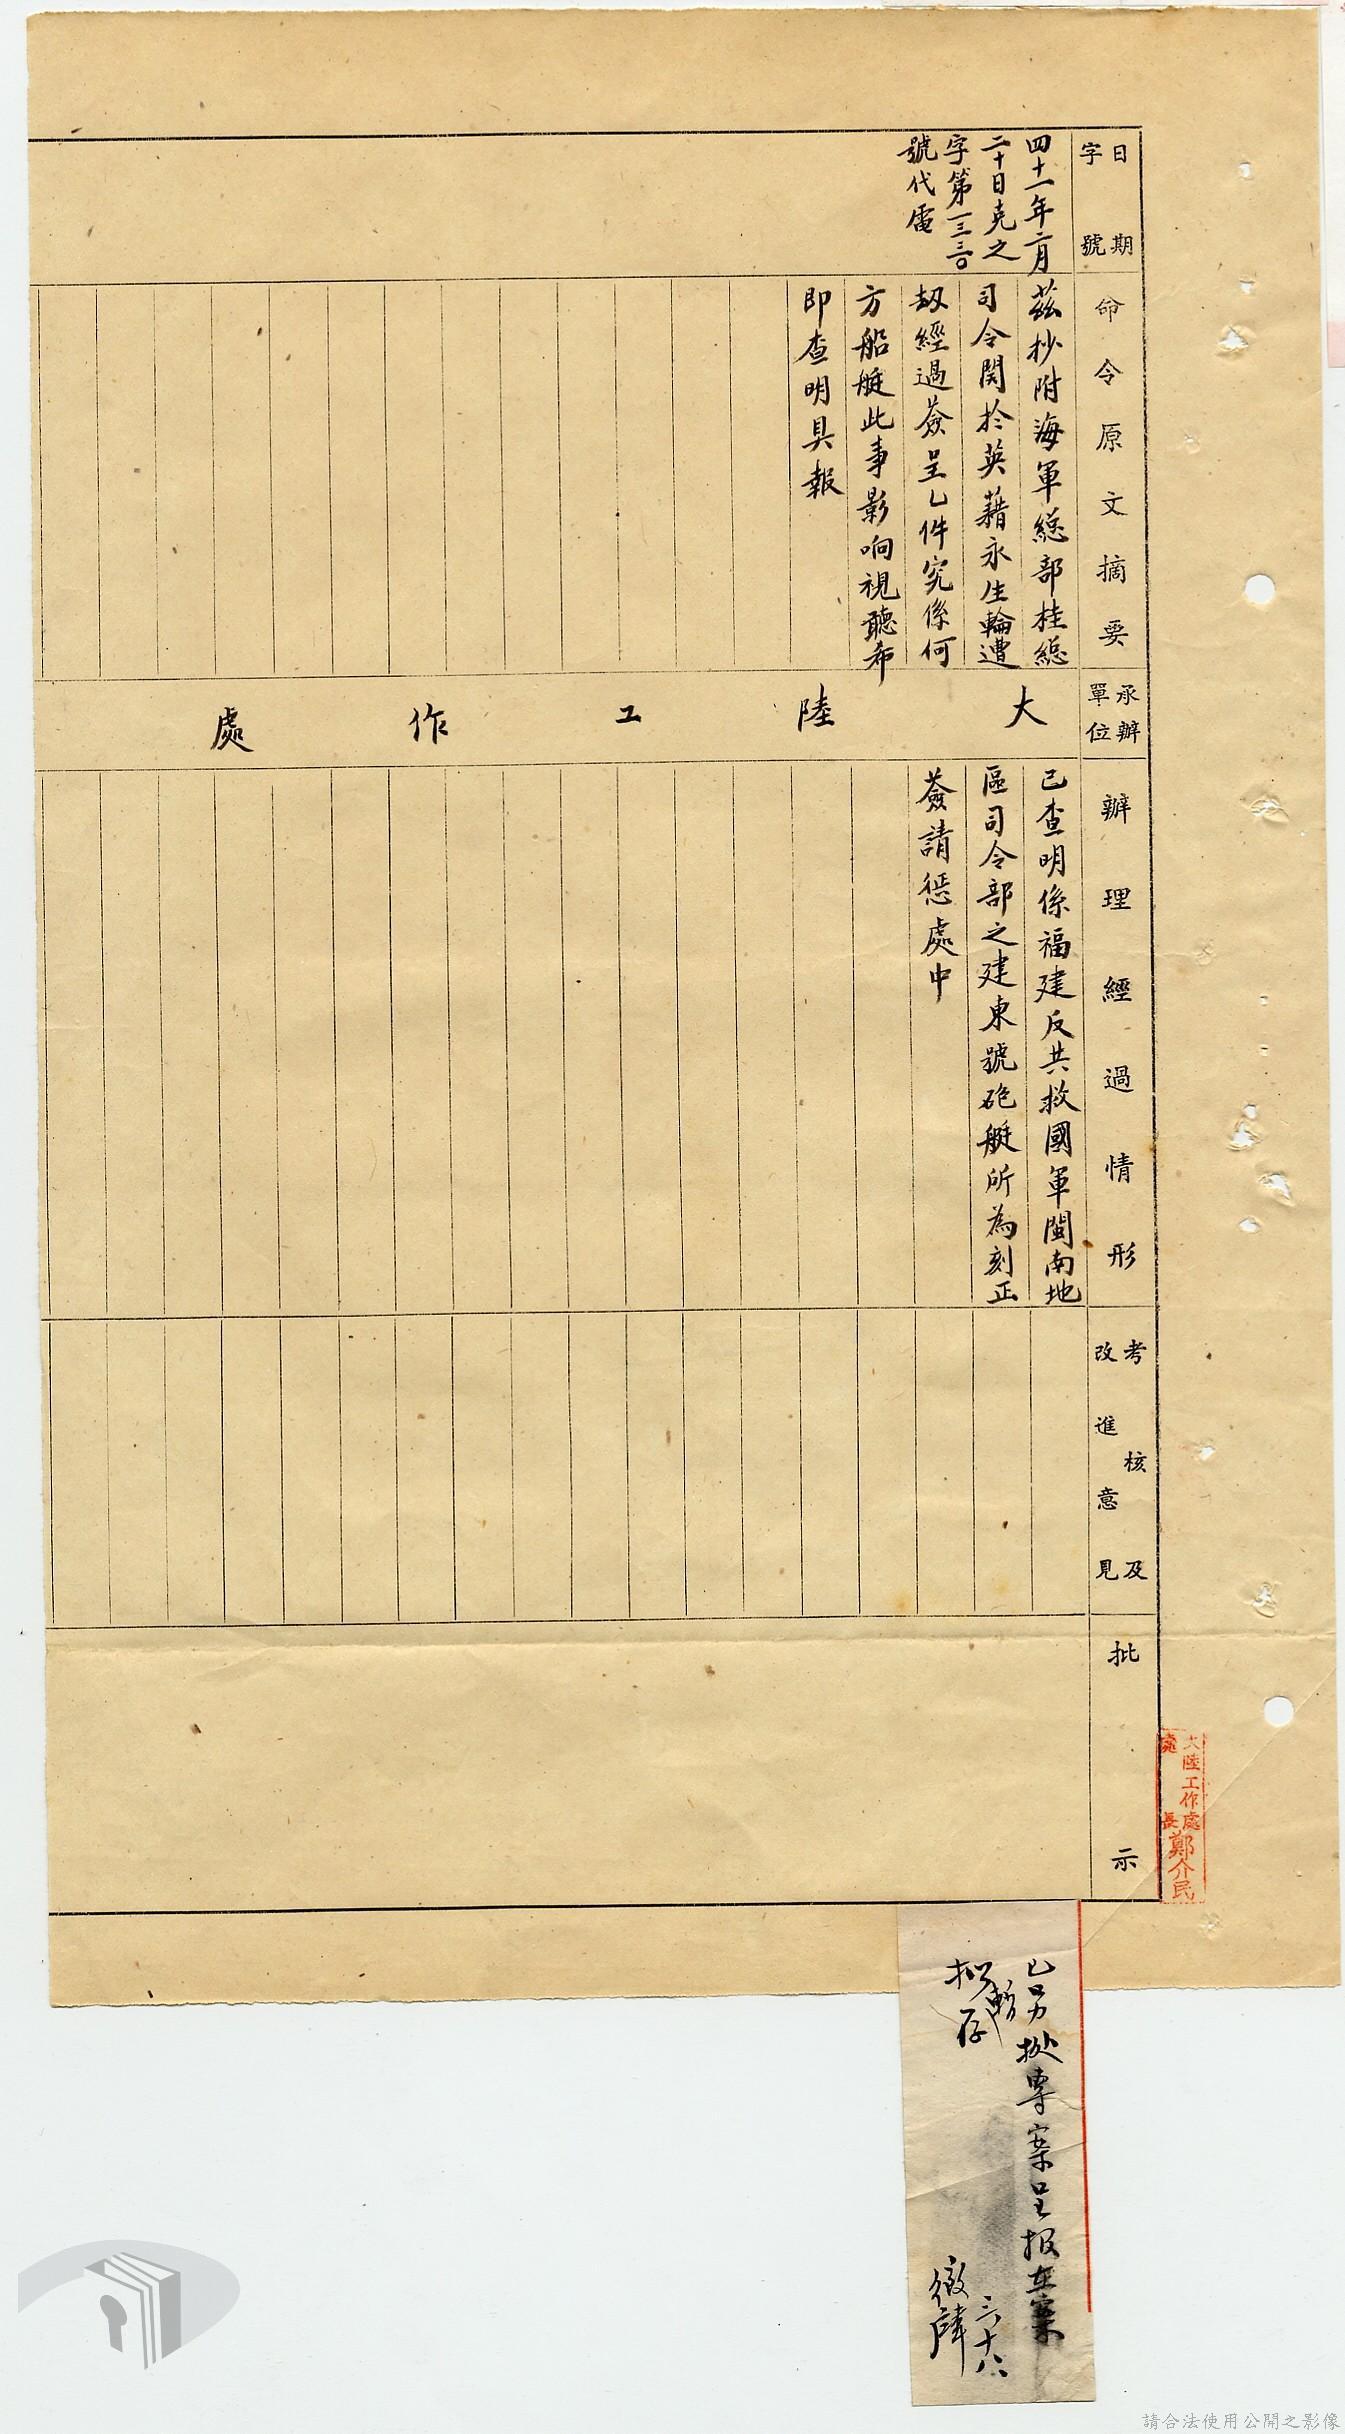 日期
字號
命令原文摘要
承辦
單位
辦理經過情形
考核及
改進意見
批示
四十一年二月
二十日克之
字第一三三〇
號代電
茲抄附海軍總部桂總
司令關於英藉永生輪遭
劫經過簽呈乙件究係何
方船艇此事影响視聽希
即查明具報
大陸工作處
已查明係福建反共救國軍閩南地
區司令部之建東號砲艇所為刻正
簽請懲處中
大陸工作處
處長鄭介民
已另擬專案呈报在案
拟暫存
三十八
請合法使用公開之影像